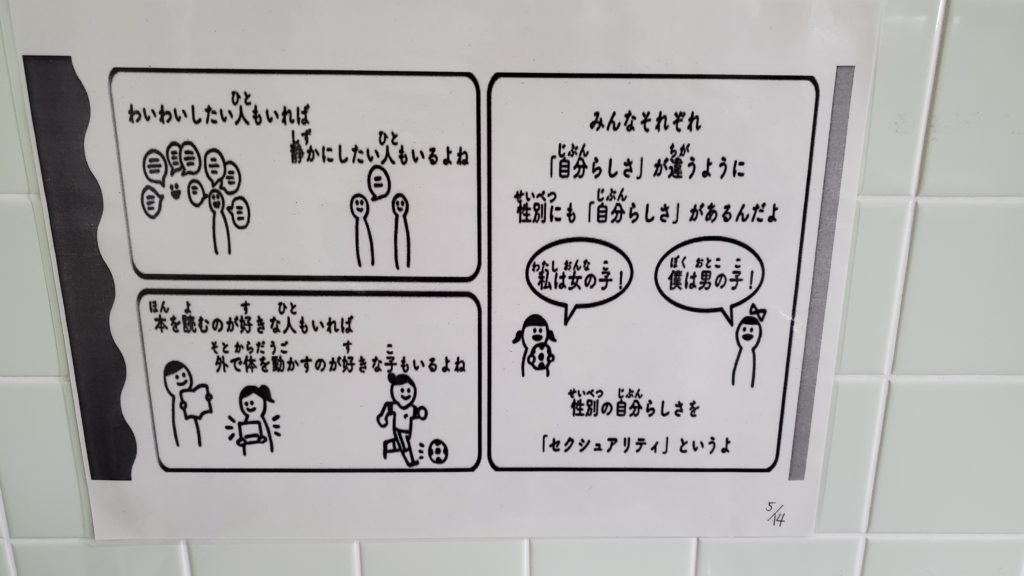 わいわいしたい人もいれば
静かにしたい人もいるよね
本を読むのが好きな人もいれば
外で体を動かすのが好きな子もいるよね
みんなそれぞれ
「自分らしさ」が違うように
性別にも「自分らしさ」があるんだよ
私は女の子!
僕は男の子!
性別の自分らしさを
「セクシュアリティ」というよ
5/14